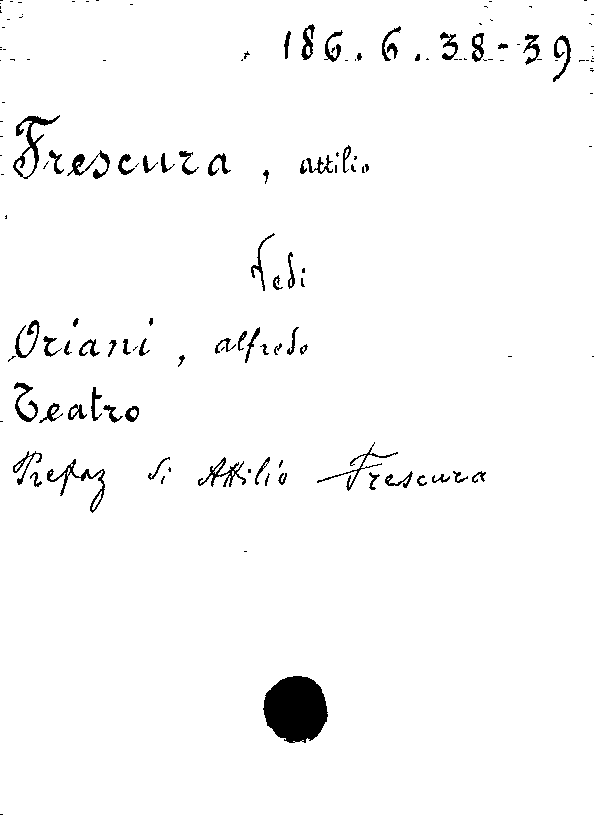 186.6.38-39
Frescura, Attilio
Vedi
Oriani, Alfredo
Teatro
Prefaz di Attilio Frescura